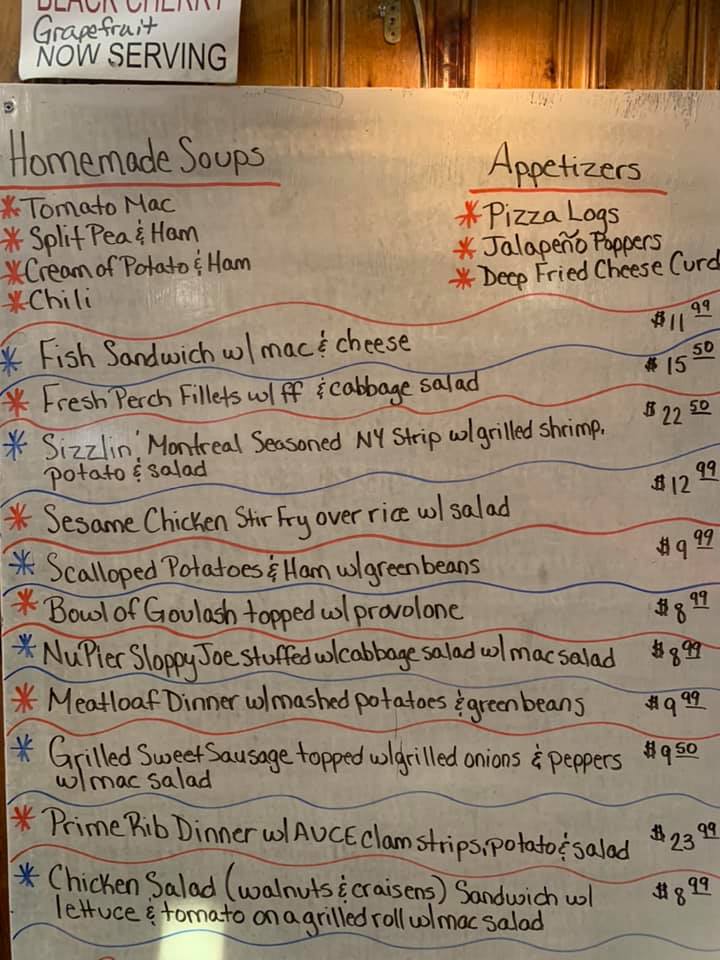 BLACK CHERRY
Grapefruit
NOW SERVING
Homemade Soups
* Tomato Mac
* Split Pea & Ham
* Cream of Potato & Ham
* Chili
Appetizers
* Pizza Logs
* Jalapeño Poppers
* Deep Fried Cheese Curd
* Fish Sandwich w/ mac & cheese $11 99
* Fresh Perch Fillets w/ ff & cabbage salad $15 50
* Sizzlin' Montreal Seasoned NY Strip w/ grilled shrimp, $22 50
potato & salad
* Sesame Chicken Stir Fry over rice w/ salad $12 99
* Scalloped Potatoes & Ham w/ green beans $9 99
* Bowl of Goulash topped w/ provolone $8 99
* NuPier Sloppy Joe stuffed w/ cabbage salad w/ mac salad $8 99
* Meatloaf Dinner w/ mashed potatoes & green beans $9 99
* Grilled Sweet Sausage topped w/ grilled onions & peppers $9 50
w/ mac salad
* Prime Rib Dinner w/ AUCE Clam strips, potato & salad $23 99
* Chicken Salad (walnuts & craisens) Sandwich w/ $8 99
lettuce & tomato on a grilled roll w/ mac salad